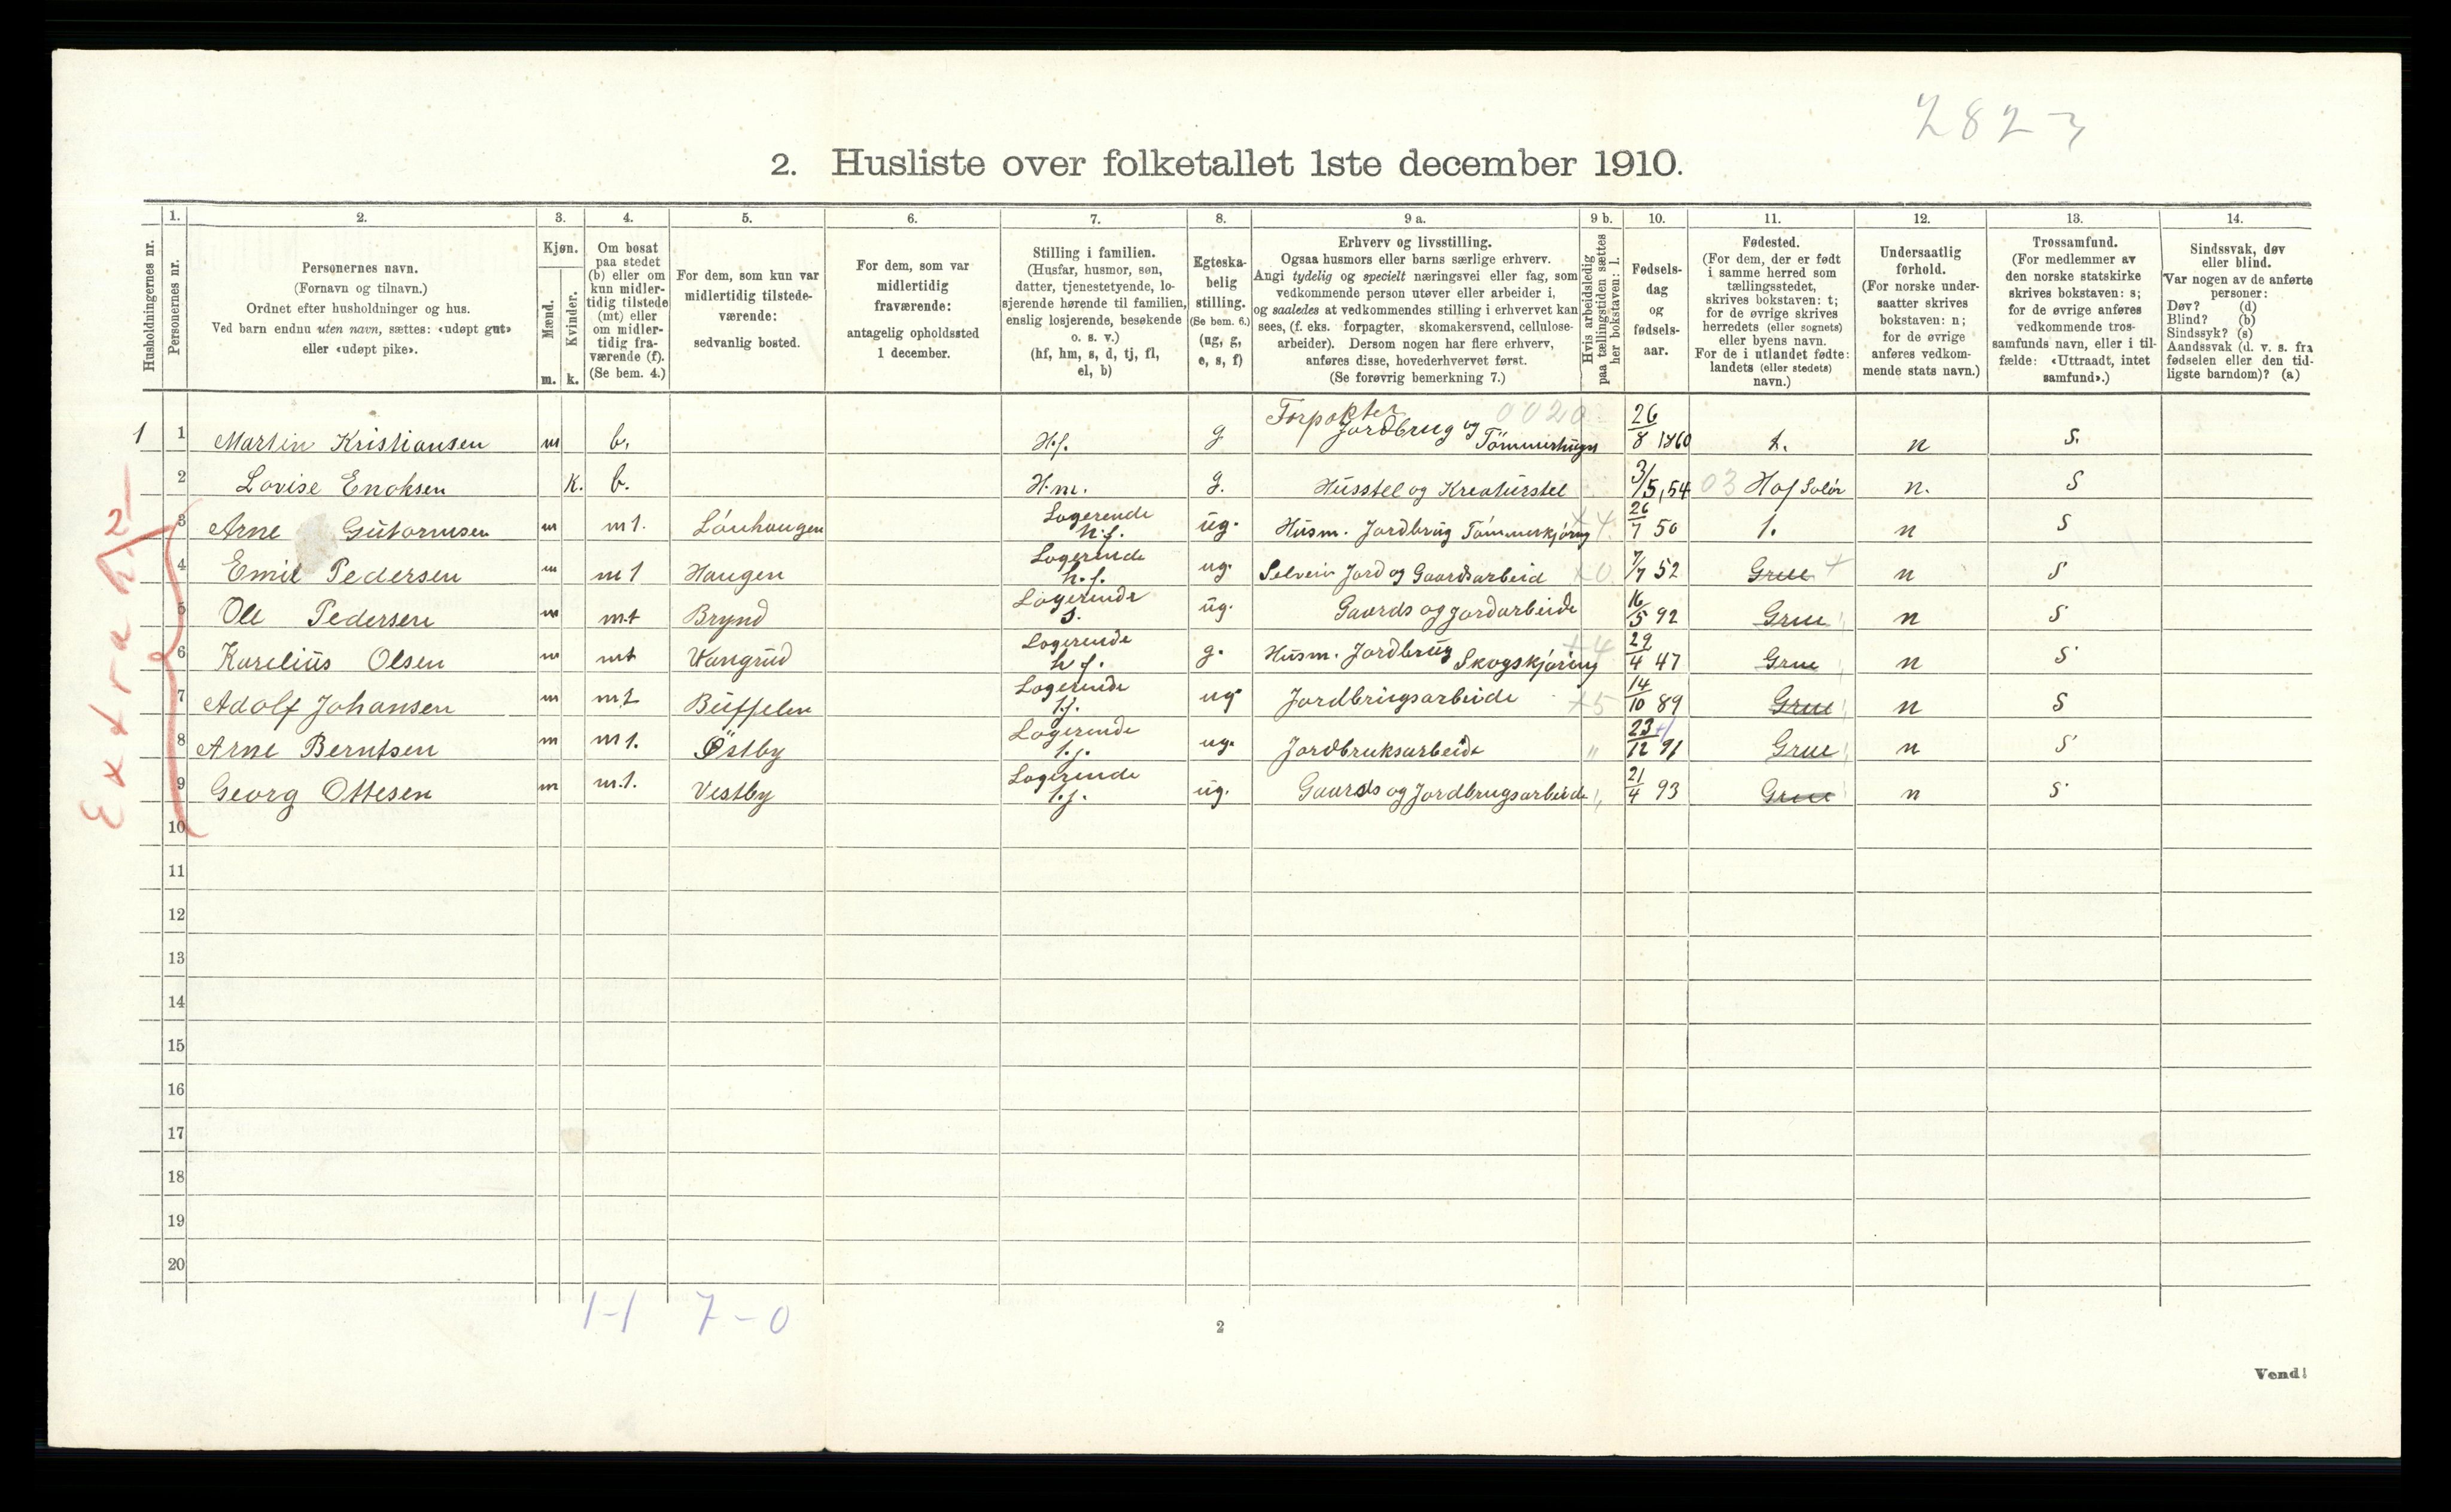 2827
2. Husliste over folketallet 1ste december 1910.
Husholdningernes nr.
1.
Personernes nr.
2.
Personernes navn.
(Fornavn og tilnavn.)
Ordnet efter husholdninger og hus.
Ved barn endnu uten navn, sættes: «udøpt gut»
eller «udøpt pike».
3.
Kjøn.
Mænd.
Kvinder.
m. k.
4.
Om bosat
paa stedet
(b) eller om
kun midler-
tidig tilstede
(mt) eller
om midler-
tidig fra-
værende (f).
(Se bem. 4.)
5.
For dem, som kun var
midlertidig tilstede-
værende:
sedvanlig bosted.
6.
For dem, som var
midlertidig
fraværende:
antagelig opholdssted
1 december.
7.
Stilling i familien.
(Husfar, husmor, søn,
datter, tjenestetyende, lo-
sjerende hørende til familien,
enslig losjerende, besøkende
o. s. v.)
(hf, hm, s, d, tj, fl,
el, b)
8.
Egteska-
belig
stilling.
(Se bem. 6.)
(ug, g,
e, s, f)
9 a.
Erhverv og livsstilling.
Ogsaa husmors eller barns særlige erhverv.
Angi tydelig og specielt næringsvei eller fag, som
vedkommende person utøver eller arbeider i,
og saaledes at vedkommendes stilling i erhvervet kan
sees, (f. eks. forpagter, skomakersvend, cellulose-
arbeider). Dersom nogen har flere erhverv,
anføres disse, hovederhvervet først.
(Se forøvrig bemerkning 7.)
9 b.
Hvis arbeidsledig
paa tællingstiden sættes
her bokstaven: l.
10.
Fødsels-
dag
og
fødsels-
aar.
11.
Fødested.
(For dem, der er født
i samme herred som
tællingsstedet,
skrives bokstaven: t;
for de øvrige skrives
herredets (eller sognets)
eller byens navn.
For de i utlandet fødte:
landets (eller stedets)
navn.)
12.
Undersaatlig
forhold.
(For norske under-
saatter skrives
bokstaven: n;
for de øvrige
anføres vedkom-
mende stats navn.)
13.
Trossamfund.
(For medlemmer av
den norske statskirke
skrives bokstaven: s;
for de øvrige anføres
vedkommende tros-
samfunds navn, eller i til-
fælde: «Uttraadt, intet
samfund».)
14.
Sindssvak, døv
eller blind.
Var nogen av de anførte
personer:
Døv? (d)
Blind? (b)
Sindssyk? (s)
Aandssvak (d. v. s. fra
fødselen eller den tid-
ligste barndom)? (a)
1 1 Martin Kristiansen m b. H.f. g Forpakter Jordbrug og Tömmerhugst 0020 26/8 1860 t. n s.
2 Lovise Enoksen K. b. H.m. g. Husstel og Kreaturstel 3/5, 54 03 Hof Solør n. s
3 Arne Gutormsen m mt. Lónhaugen Logerende h.f. ug. Husm. Jordbrug Tømmerkjøring 26/7 50 t. n s
4 Emil Pedersen m mt Haugen Logerende h.f. ug. Selveier Jord og Gaardsarbeid 7/7 52 Grue n s
5 Ole Pedersen m mt Brynd Logerende s. ug. Gaards og jordarbeide 16/5 92 Grue n s
6 Karelius Olsen m mt Vangrud Logerende h.f. g. Husm. Jordbrug Skogskjøring 29/4 47 Grue n s
7 Adolf Johansen m mt Buffelen Logerende t.j. ug Jordbrugsarbeide 14/10 89 Grue n s
8 Arne Berntsen m mt. Östby Logerende t.j. ug. Jordbruksarbeide " 23/12 91 Grue n s
9 Georg Ottesen m m.t. Vestby Logerende t.j. ug. Gaards og Jordbrugsarbeide 21/4 93 Grue n s
Extra h. 2
10
11
12
13
14
15
16
17
18
19
20
1-1 7-0
2
Vend!